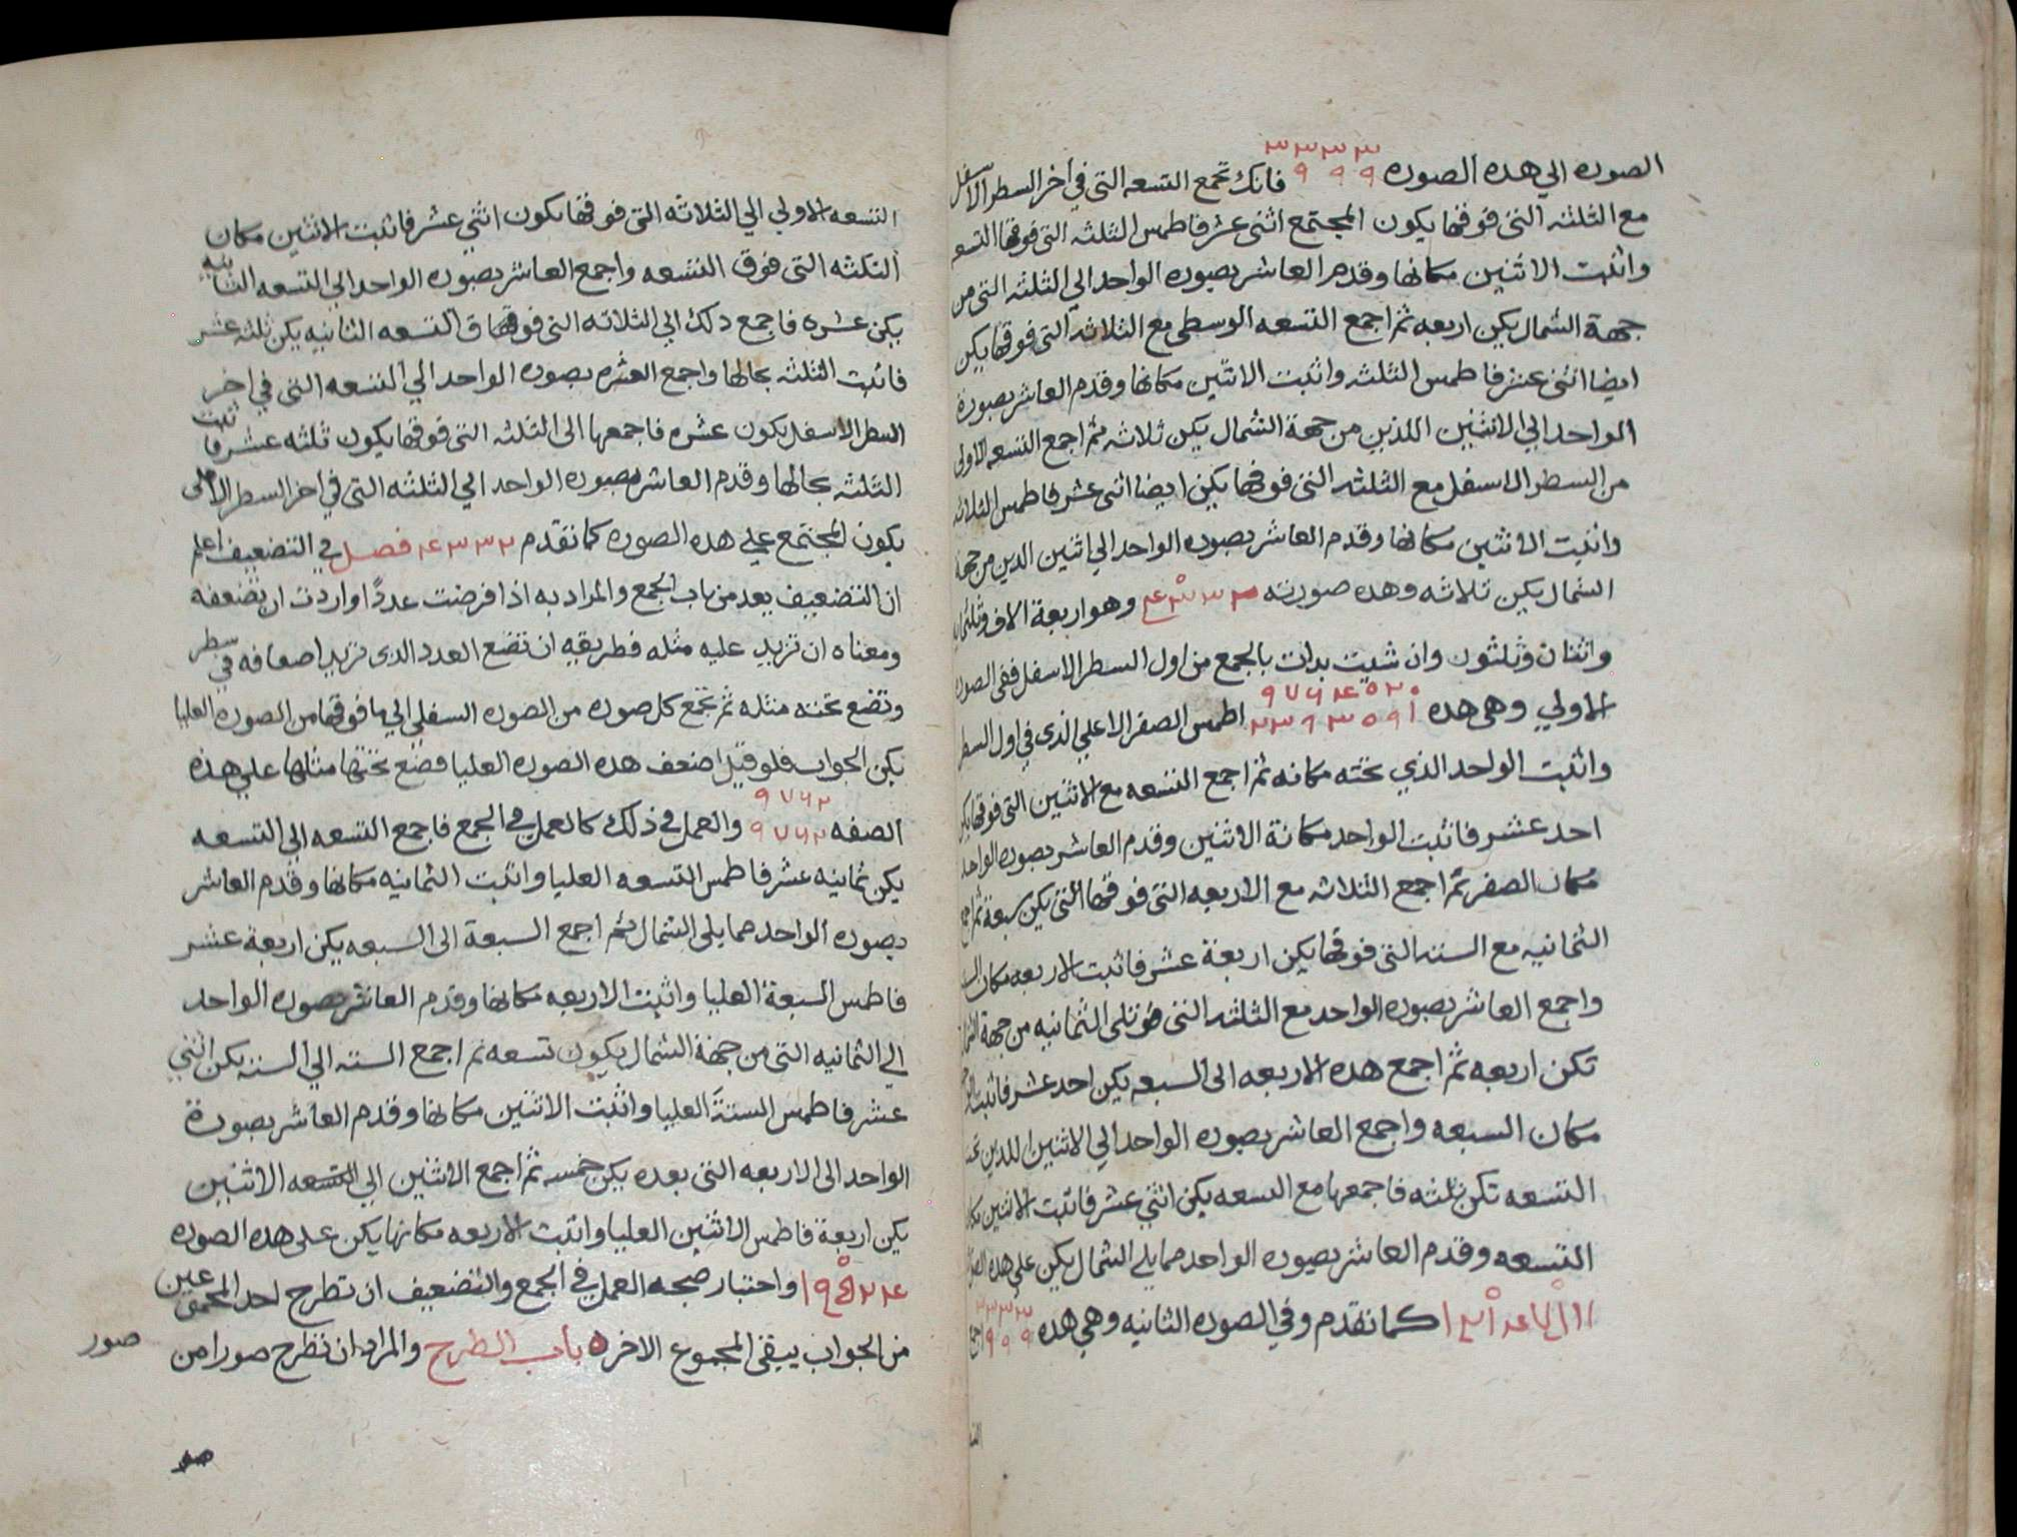 ٣٣٣٣
الصوره الي هده الصوره ٩ ٩ ٩ فانك تجمع التسعه التى في اخر السطر الاسفل
مع الثلثه التى فوقها يكون المجتمع اثنى عشر فاطمس الثلثه التى فوقها التسعه
واثبت الاثنين مكانها وقدم العاشر بصوره الواحد الي الثلثه التى من
جهة الشمال يكن اربعه ثم اجمع التسعه الوسطى مع الثلاثه التى فوقها يكن
ايضا اثنى عشر فاطمس الثلثه واثبت الاثنين مكانها وقدم العاشر بصورة
الواحد الي الاثنين اللذين من جهة الشمال يكن ثلاثه ثم اجمع التسعه الاولى
من السطر الاسفل مع الثلثه التى فوقها يكن ايضا اثنى عشر فاطمس الثلاثه
واثبت الاثنين مكانها وقدم العاشر بصوره الواحد الي اثنين الدين من جهة
الشمال يكن ثلاثه وهده صورته ٤٣٣٢ وهو اربعة الاف وثلثمايه
واثنان وثلثون وان شيت بدات بالجمع من اول السطر الاسفل ففى الصوره
٩٧٦٤٥٢٠
الاولي وهي هده اطمس الصفر الاعلي الذى في اول السطر
واثبت الواحد الذي تحته مكانه ثم اجمع التسعه مع الاثنين التى فوقها يكن
احد عشر فاثبت الواحد مكانة الاثنين وقدم العاشر بصوره الواحد
مكان الصفر ثم اجمع الثلاثه مع الاربعه التى فوقها التى يكن سبعة ثم اجمع
الثمانيه مع السته التى فوقها يكن اربعة عشر فاثبت الاربعه مكان
واجمع العاشر بصوره الواحد مع الثلثه التى تلى الثمانيه من جهة الشمال
تكن اربعه ثم اجمع هده الاربعه الى السبعه يكن احد عشر فاثبت
مكان السبعه واجمع العاشر بصوره الواحد الي الاثنين اللدين تحت
التسعه تكن ثلثه فاجمعها مع التسعه يكن اثني عشر فاثبت الاثنين مكان
التسعه وقدم العاشر بصوره الواحد مما يلي الشمال يكن علي هده الصوره
كما تقدم وفي الصوره الثانيه وهي هده ٣٣٣٣ ٩ ٩ ٩ اجمع
التسعه الاولي الي الثلاثه التى فوقها يكون اثني عشر فاثبت الاثنين مكان
الثلثه التى فوق التسعه واجمع العاشر بصوره الواحد الي التسعه الثانيه
يكن عشره فاجمع دلك الي الثلاثه التى فوقها ق التسعه الثانيه يكن ثلثه عشر
فاثبت الثلثه بحالها واجمع العشره بصوره الواحد الي التسعه التى في اخر
السطر الاسفل يكون عشره فاجمعها الى الثلثه التى فوقها يكون ثلثه عشر فاثبت
الثلثه بحالها وقدم العاشر بصوره الواحد الي الثلثه التى في اخر السطر الاعلى
يكون المجتمع علي هده الصوره كما تقدم ٤٣٣٢ فصل في التضعيف اعلم
ان التضعيف يعد من باب الجمع والمراد به اذا فرضت عددًا واردت ان تضعفه
ومعناه ان تزيد عليه مثله فطريقه ان تضع العدد الدى تريد اضعافه في سطر
وتضع تحته مثله ثم تجمع كل صوره من الصوره السفلى الي ما فوقها من الصوره العليا
يكن الجواب فلو قيل اضعف هده الصوره العليا فضع تحتها مثلها علي هذه
٩٧٦٢
الصفه ٩٧٦٢ والعمل في ذلك كالعمل في الجمع فاجمع التسعه الى التسعه
يكن ثمانيه عشر فاطمس التسعه العليا واثبت الثمانيه مكانها وقدم العاشر
بصوره الواحد مما يلى الشمال ثم اجمع السبعة الى السبعه يكن اربعة عشر
فاطمس السبعة العليا واثبت الاربعه مكانها وقدم العاشر بصوره الواحد
الي الثمانيه التى من جهة الشمال يكون تسعه ثم اجمع السته الي السته يكن اثني
عشر فاطمس الستة العليا واثبت الاثنين مكانها وقدم العاشر بصورة
الواحد الى الاربعه التى بعده يكن خمسه ثم اجمع الاثنين الي التسعه الاثنين
يكن اربعة فاطمس الاثنين العليا واثبت الاربعه مكانها يكن على هده الصوره
١٩٥٢٤ واختبار صحه العمل في الجمع والتضعيف ان تطرح احد المجموعين
من الجواب يبقى المجموع الاخر ه باب الطرح والمراد ان تطرح صورا من
صور